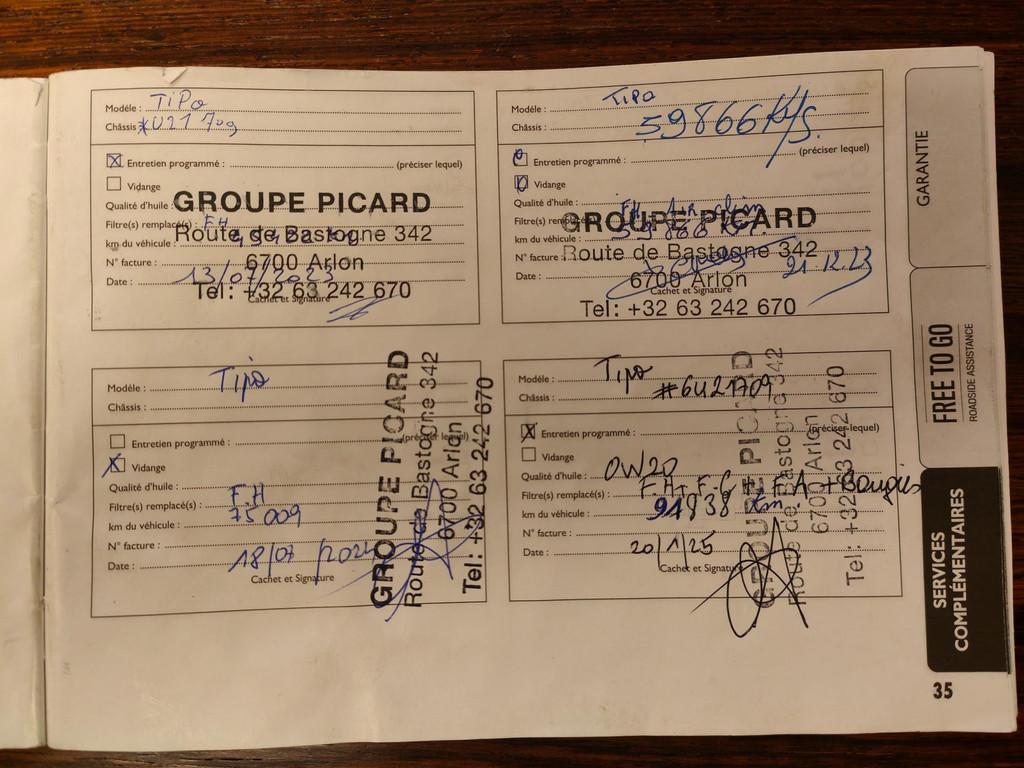 Modèle : TiPo
Châssis
Entretien programmé : (préciser lequel)
Vidange
Qualité d'huile :
GROUPE PICARD
Filtre(s) remplacé(s) : F.H
Route de Bastogne 342
km du véhicule :
6700 Arlon
N° facture :
Date : 13/07/2023
Tel: +32 63 242 670
Cachet et Signature
Modèle : TiPo
Châssis : 59866 K/s.
Entretien programmé : (préciser lequel)
Vidange
Qualité d'huile :
Filtre(s)
GROUPE PICARD
km du véhicule : 59866
Route de Bastogne 342
N° facture :
6700 Arlon
Date : 21.12.23
Cachet et Signature
Tel: +32 63 242 670
Modèle : Tipo
Châssis :
Entretien programmé : (préciser lequel)
Vidange
Qualité d'huile :
Filtre(s) remplacé(s) : F.H
km du véhicule : 75009
N° facture :
Date : 18/07
Cachet et Signature
GROUPE PICARD
Route de Bastogne 342
6700 Arlon
Tel: +32 63 242 670
Modèle : Tipo
Châssis : #6U21709
Entretien programmé : (préciser lequel)
Vidange
Qualité d'huile : OW20
Filtre(s) remplacé(s) : F.H+ F.C + F.A + Bougies
km du véhicule : 91838 km
N° facture :
Date : 20/1/25
Cachet et Signature
GROUPE PICARD
Route de Bastogne 342
6700 Arlon
Tel: +32 63 242 670
GARANTIE
FREE TO GO
ROADSIDE ASSISTANCE
SERVICES
COMPLÉMENTAIRES
35